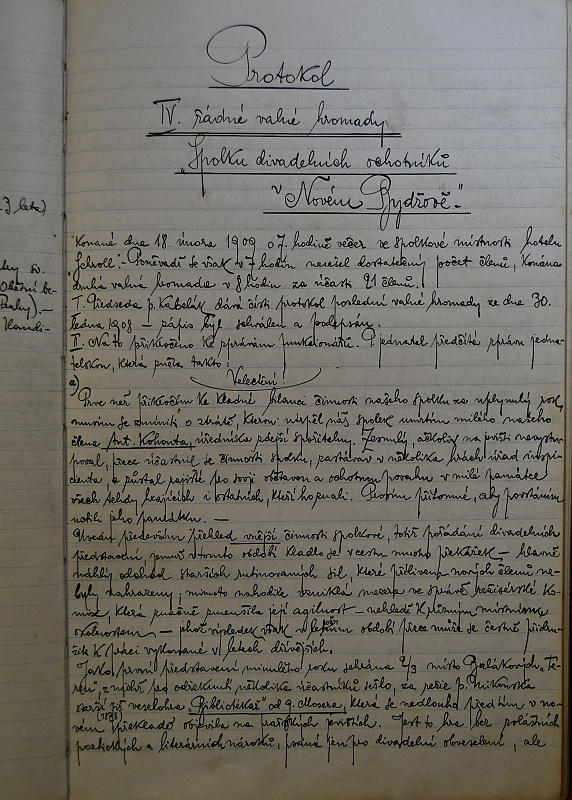 3 leta)
Protokol
IV. řádné valné hromady
"Spolku divadelních ochotníků
v Novém Bydžově."
Konané dne 18. února 1909 o 7. hodině večer ve spolkové místnosti hotelu
Schroll. - Poněvadž se však v 7 hodin nesešel dostatečný počet členů, konána
druhá valná hromada v 8 hodin za účasti 21 členů.
I. Předseda p. Kabelák dává čísti protokol poslední valné hromady ze dne 30.
ledna 1908 — zápis byl schválen a podepsán.
II. Na to přikročeno ke zprávám funkcionářů. P. jednatel předčítá zprávu jedna-
telskou, která zněla takto:
Velectění!
a)
Prve než přikročím ke kladné bilanci činnosti našeho spolku za uplynulý rok,
musím se zmíniti o ztrátě, kterou utrpěl náš spolek úmrtím milého našeho
člena Ant. Kohouta, úředníka zdejší spořitelny. Zesnulý, ačkoliv na jevišti nevystu-
poval, přece účastnil se činnosti spolku, zastávav v několika hrách úřad inspi-
cienta, a zůstal zajisté pro svoji obětavou a ochotnou povahu v milé památce
všech tehdy hrajících i ostatních, kteří ho znali. Prosím přítomné, aby povstáním
uctili jeho památku. —
Uvedu především přehled vnější činnosti spolkové, totiž pořádání divadelních
představení, jemuž v tomto období kladlo se v cestu mnoho překážek — hlavně
náhlý odchod starších rutinovaných sil, které přílivem nových členů ne-
byly nahrazeny; mimoto nahodile vzniklá mezera ve správě režisérské ko-
mise, která značně zmenšila její agilnost — nehledě k různým místním
okolnostem — jehož výsledek však v letošním období přece může se čestně přidru-
žit k práci vykonané v letech dřívějších.
Jako první představení minulého roku sehrána 9/3 místo Balákových "Te-
ren", z nichž po odřeknutí několika účastníků sešlo, za režie p. Mikanka
starší již veselohra "Bibliotékář" od G. Mosera, která se nedlouho předtím v no-
(1878)
vém překladě objevila na pražských jevištích. Jest to hra bez zvláštních
poetických a literárních nároků, psána jen pro divadelní obveselení, ale